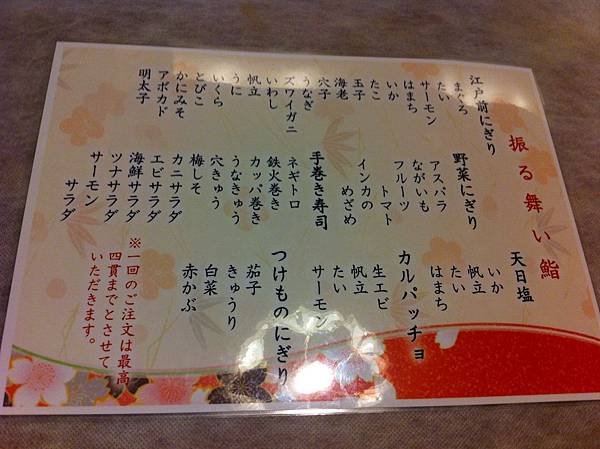 振る舞い鮨
江戸前にぎり
まぐろ
たい
サーモン
はまち
いか
たこ
玉子
海老
穴子
うなぎ
ズワイガニ
いわし
帆立
うに
いくら
とびこ
かにみそ
アボカド
明太子
野菜にぎり
アスパラ
ながいも
フルーツ
トマト
インカの
めざめ
手巻き寿司
ネギトロ
鉄火巻き
カッパ巻き
うなきゅう
穴きゅう
梅しそ
カニサラダ
エビサラダ
海鮮サラダ
ツナサラダ
サーモン
サラダ
天日塩
いか
帆立
たい
はまち
カルパッチョ
生エビ
帆立
たい
サーモン
つけものにぎり
茄子
きゅうり
白菜
赤かぶ
※一回のご注文は最高
四貫までとさせて
いただきます。